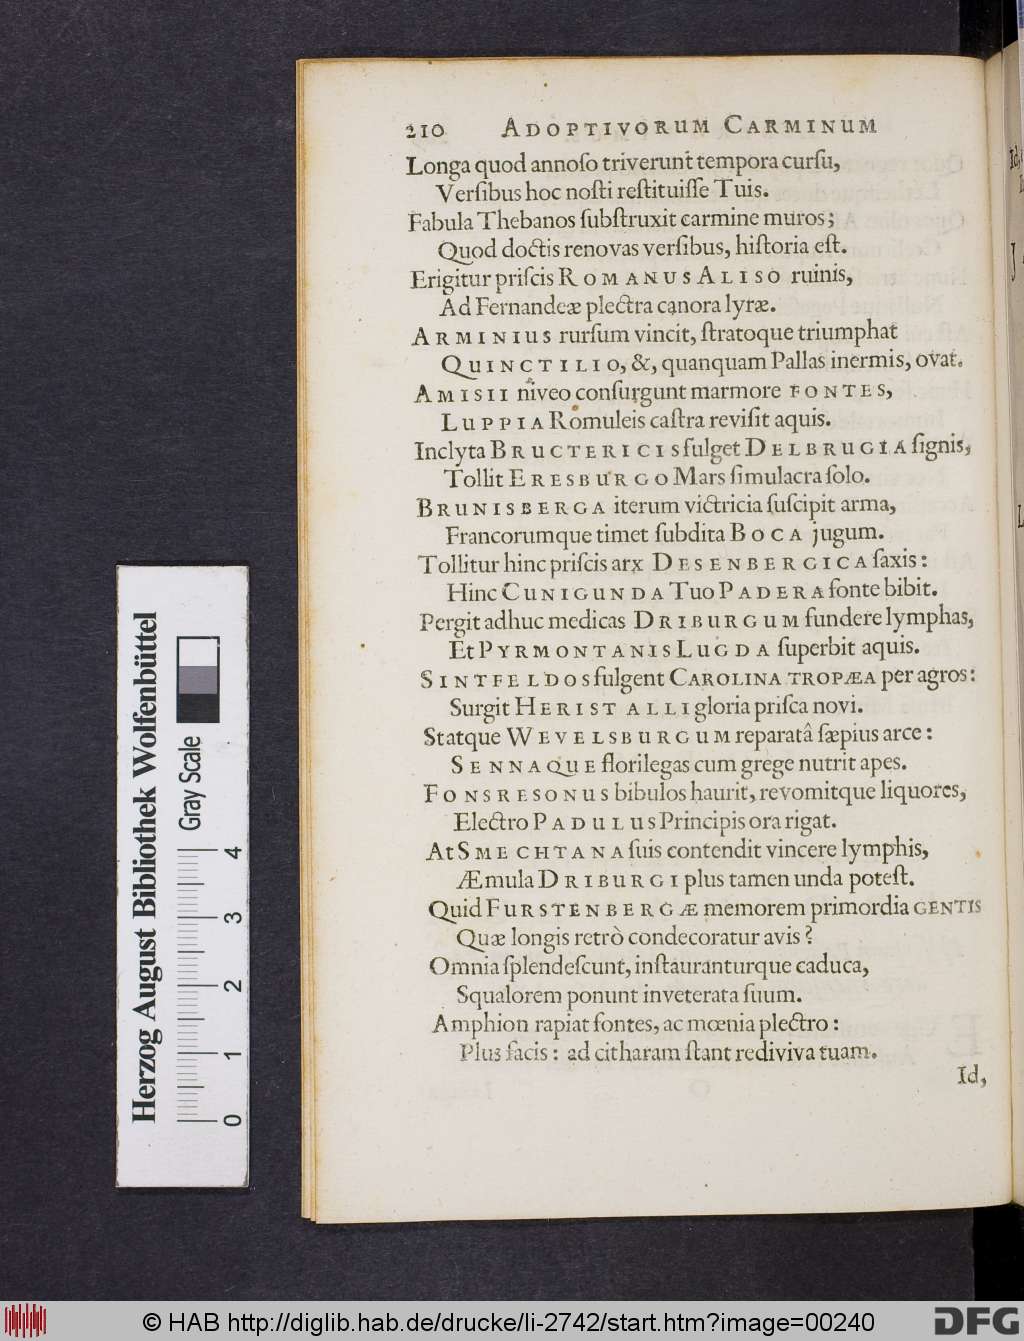 210 ADOPTIVORUM CARMINUM
Longa quod annoſo triverunt tempora curſu,
Verſibus hoc noſti reſtituiſſe Tuis.
Fabula Thebanos ſubſtruxit carmine muros;
Quod doctis renovas verſibus, hiſtoria eſt.
Erigitur priſcis ROMANUS ALISO ruinis,
Ad Fernandeæ plectra canora lyræ.
ARMINIUS rurſum vincit, ſtratoque triumphat
QUINCTILIO, &, quanquam Pallas inermis, ovat.
AMISII niveo conſurgunt marmore FONTES,
LUPPIA Romuleis caſtra reviſit aquis.
Inclyta BRUCTERICIS fulget DELBRUGIA ſignis,
Tollit ERESBURGO Mars ſimulacra ſolo.
BRUNISBERGA iterum victricia ſuſcipit arma,
Francorumque timet ſubdita BOCA jugum.
Tollitur hinc priſcis arx DESENBERGICA ſaxis:
Hinc CUNIGUNDA Tuo PADERA fonte bibit.
Pergit adhuc medicas DRIBURGUM fundere lymphas,
Et PYRMONTANIS LUGDA ſuperbit aquis.
SINTFELDOS fulgent CAROLINA TROPÆA per agros:
Surgit HERISTALLI gloria priſca novi.
Statque WEVELSBURGUM reparatâ ſæpius arce:
SENNAQUE florilegas cum grege nutrit apes.
FONS RESONUS bibulos haurit, revomitque liquores,
Electro PADULUS Principis ora rigat.
At SMECHTANA ſuis contendit vincere lymphis,
Æmula DRIBURGI plus tamen unda poteſt.
Quid FURSTENBERGÆ memorem primordia GENTIS
Quæ longis retrò condecoratur avis?
Omnia ſplendeſcunt, inſtauranturque caduca,
Squalorem ponunt inveterata ſuum.
Amphion rapiat fontes, ac mœnia plectro:
Plus facis: ad citharam ſtant rediviva tuam.
Id,
Herzog August Bibliothek Wolfenbüttel
Gray Scale
0 1 2 3 4
© HAB http://diglib.hab.de/drucke/li-2742/start.htm?image=00240
DFG